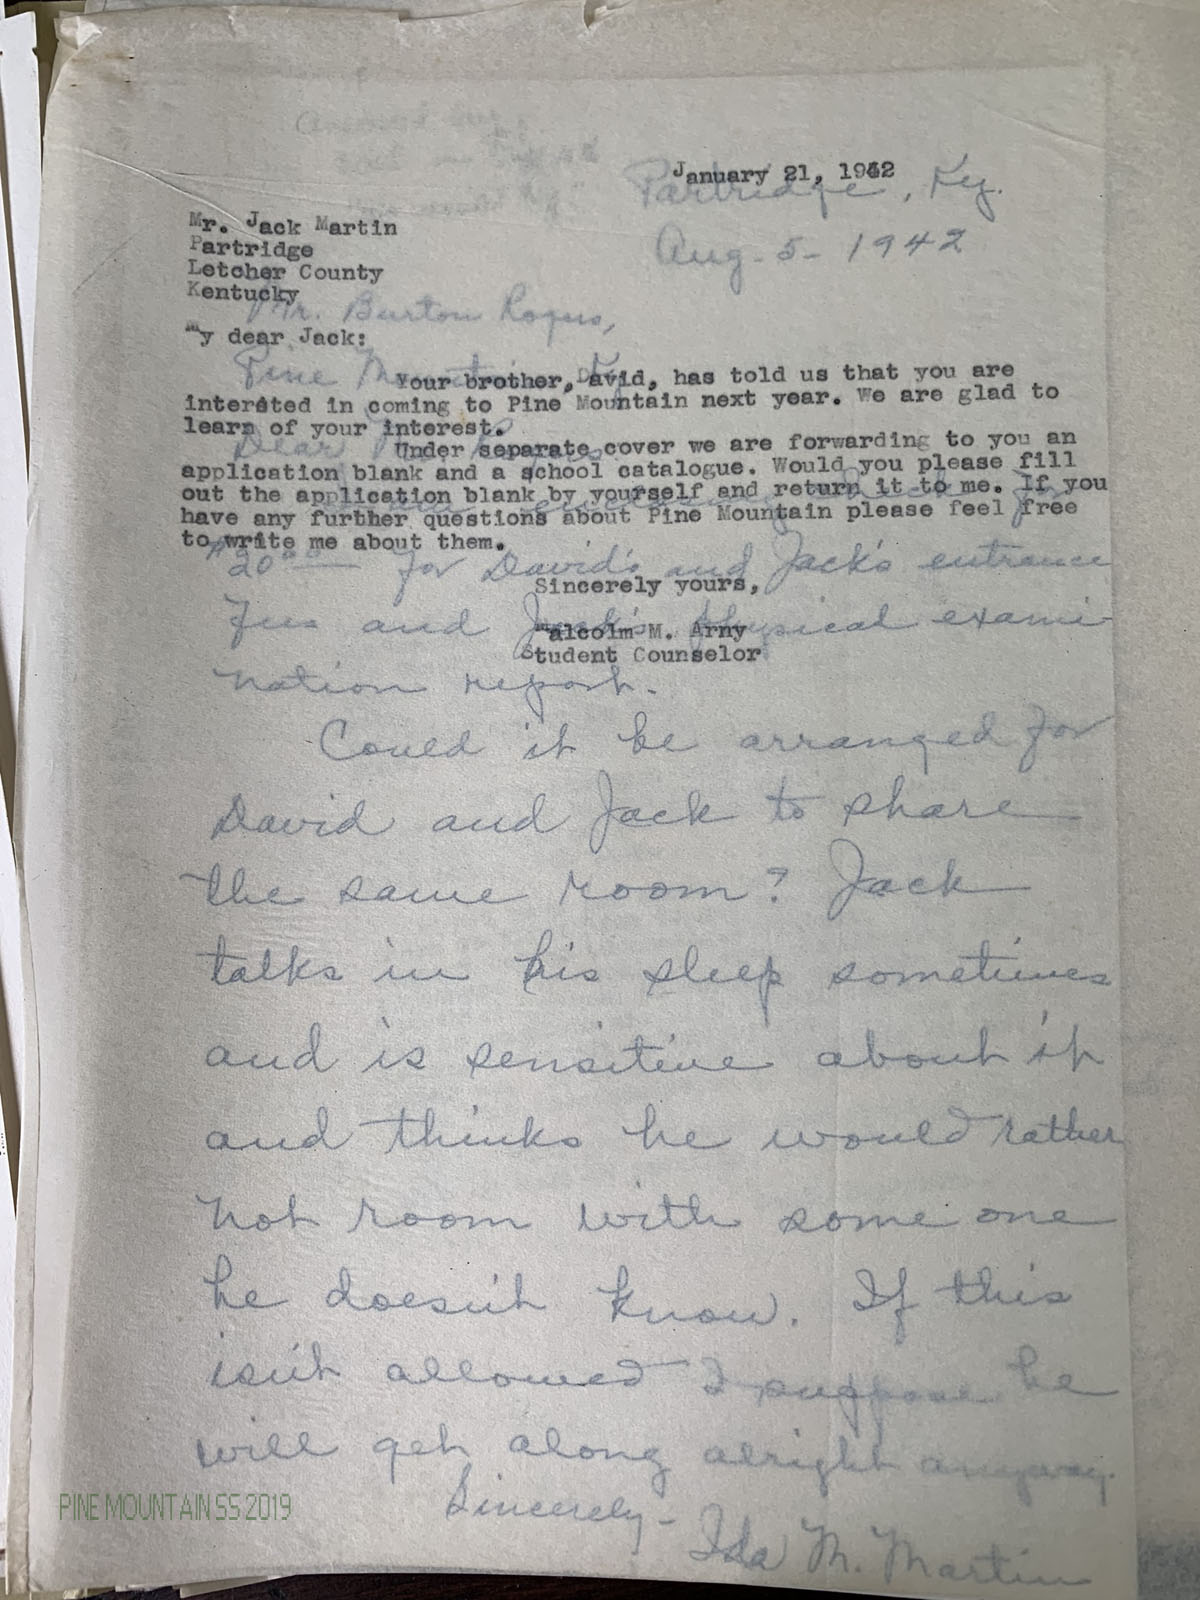 January 21, 1942
Mr. Jack Martin
Partridge
Letcher County
Kentucky
My dear Jack:
Your brother, David, has told us that you are
interested in coming to Pine Mountain next year. We are glad to
learn of your interest.
Under separate cover we are forwarding to you an
application blank and a school catalogue. Would you please fill
out the application blank by yourself and return it to me. If you
have any further questions about Pine Mountain please feel free
to write me about them.
Sincerely yours,
Malcolm M. Arny
Student Counselor
Partridge, Ky.
Aug. 5 - 1942
Mr. Burton Rogers,
Pine Mountain, Ky.
Dear Mr. Rogers
$20.00 for David's and Jack's entrance
fees and Jack's physical exami-
nation report.
Could it be arranged for
David and Jack to share
the same room? Jack
talks in his sleep sometimes
and is sensitive about it
and thinks he would rather
not room with some one
he doesn't know. If this
isn't allowed I suppose he
will get along alright anyway.
Sincerely -
Ida M. Martin
PINE MOUNTAIN SS 2019